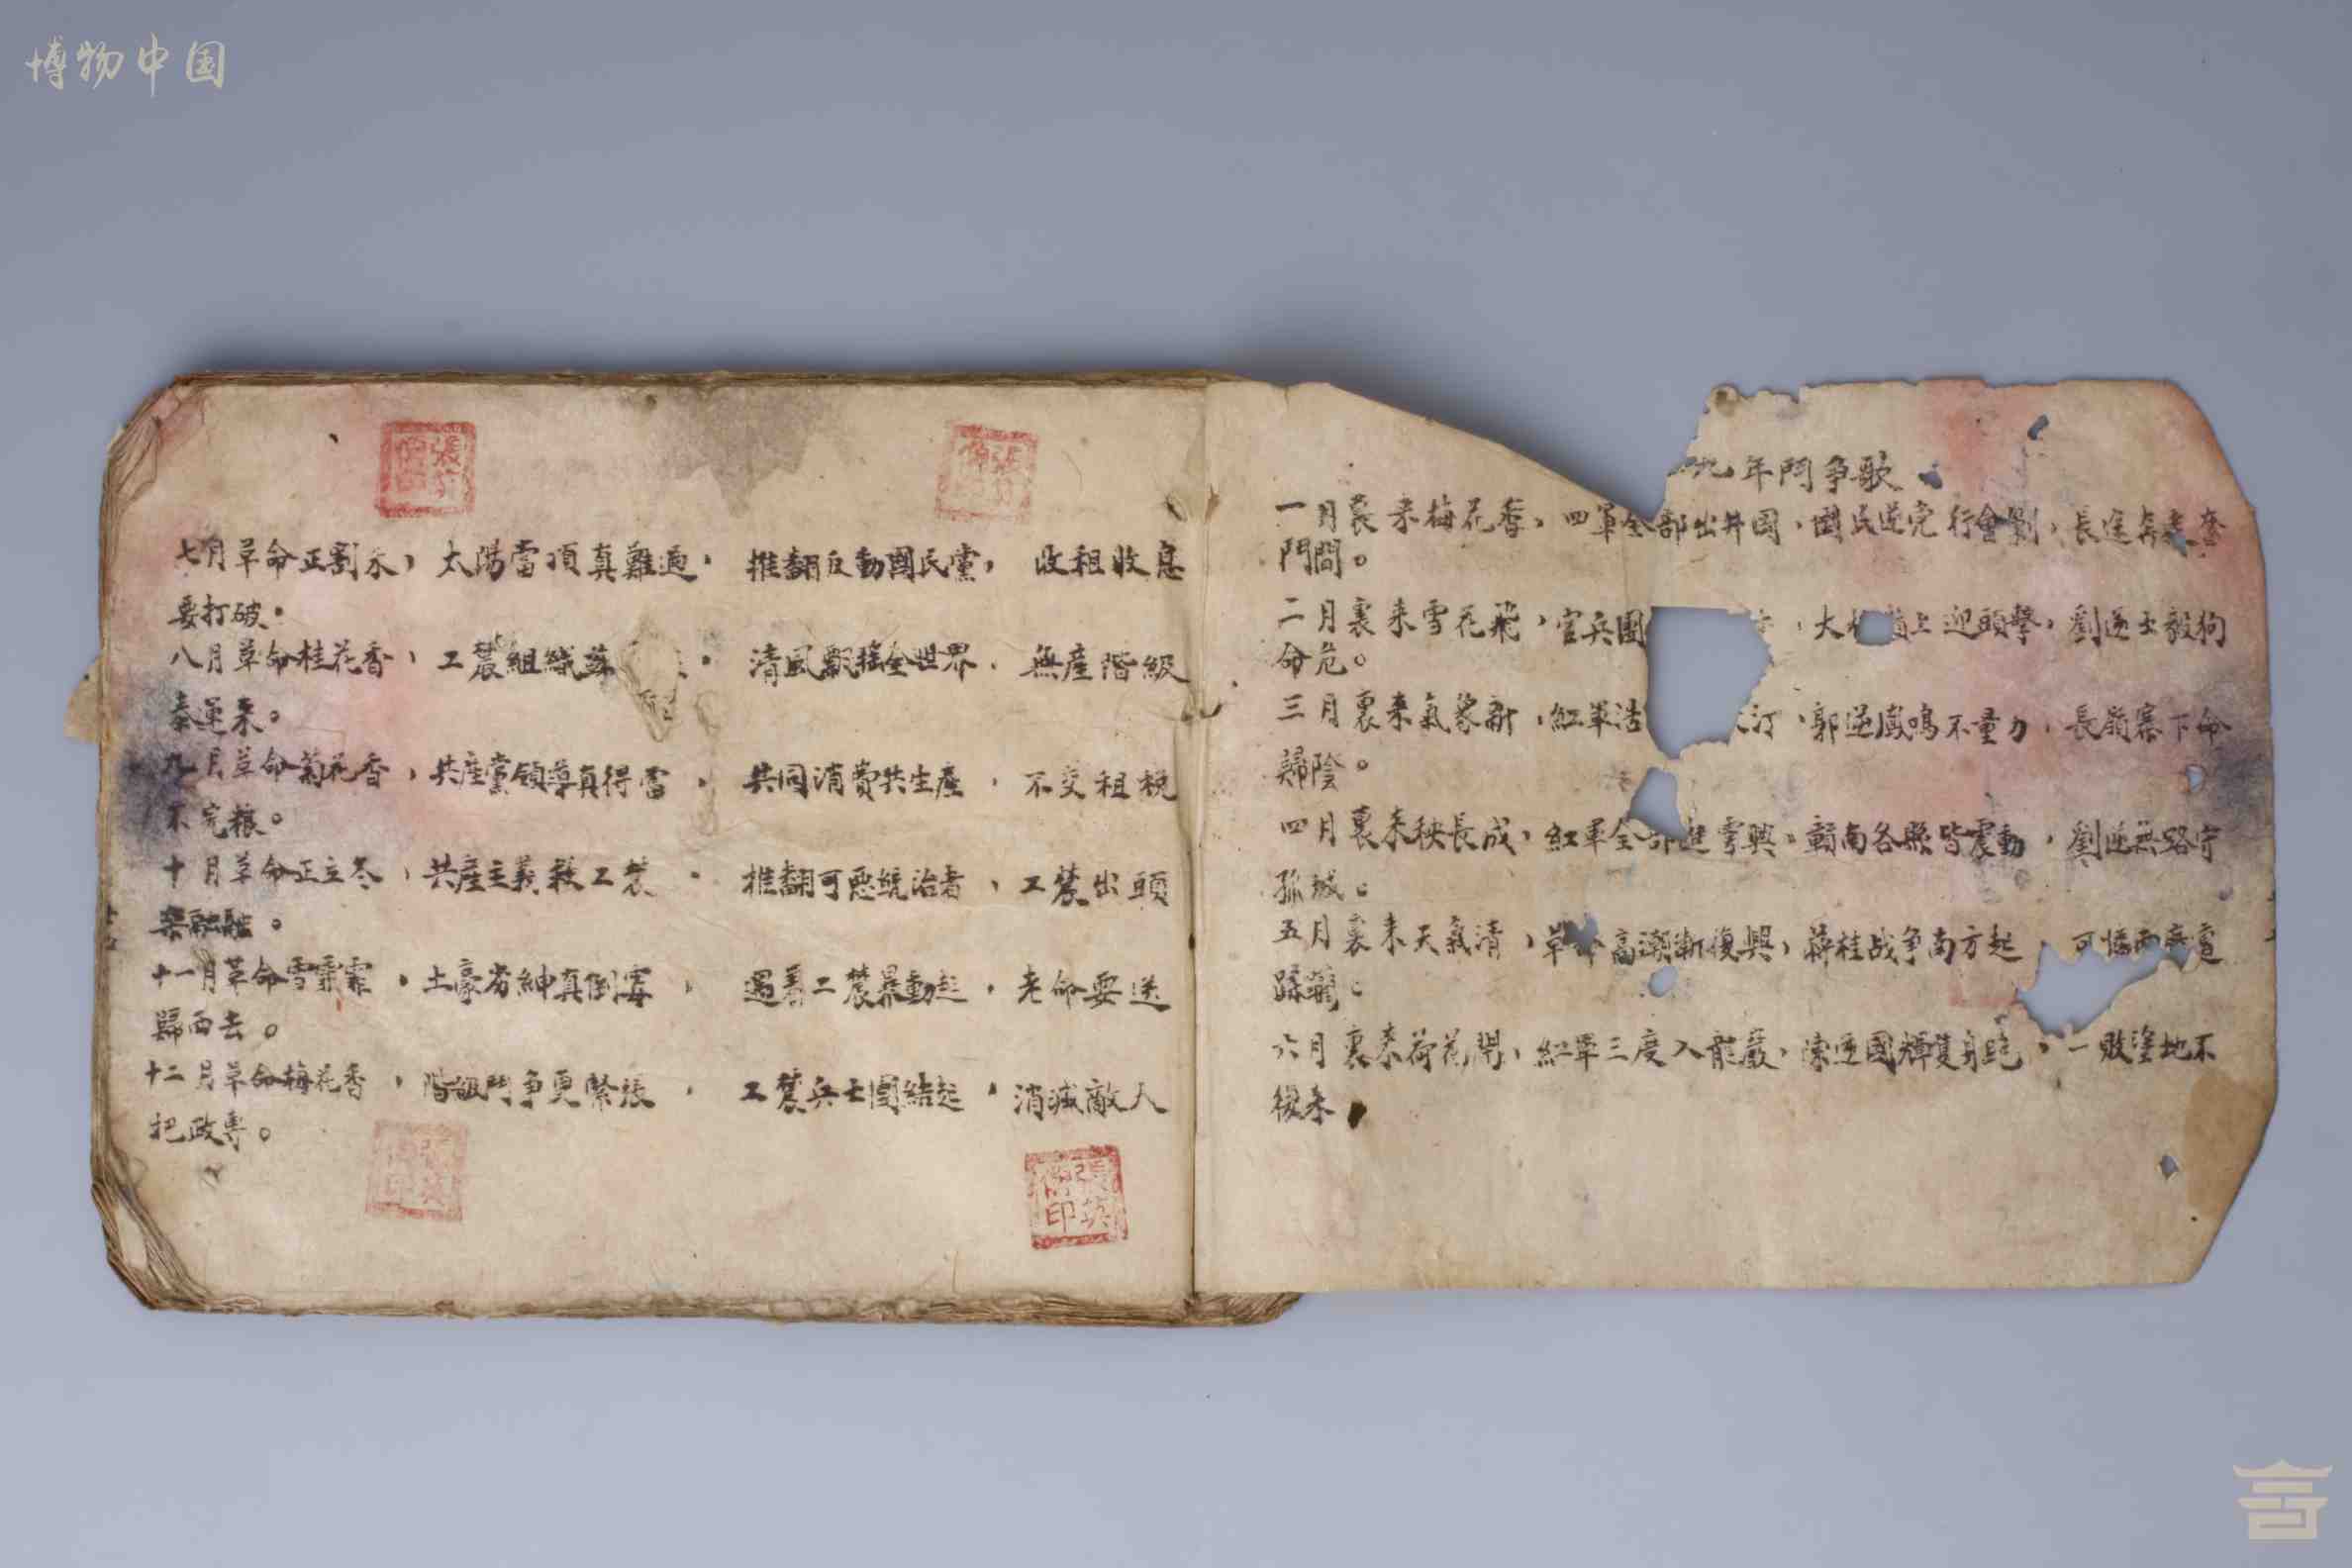 博物中国
七月革命正割禾，太陽當頂真難過，推翻反動國民黨，收租收息
要打破。
八月革命桂花香，工農組織蘇 清風飄摇全世界，無産階級
泰運来。
九月革命菊花香，共産黨領導真得當，共同消費共生産，不交租税
不完粮。
十月革命正立冬，共産主義救工農，推翻可惡統治者，工農出頭
樂融融。
十一月革命雪霏霏，土豪劣紳真倒霉，遇着工農暴動起，老命要送
歸西去。
十二月革命梅花香，階級鬥争更緊張，工農兵士團結起，消滅敵人
把政專。
九年鬥争歌
一月裏来梅花香，四軍全部出井岡，國民逆党行會剿，長途奔走
門閭。
二月裏来雪花飛，官兵團 大 嶺上迎頭擊，劉逆士毅狗
命危。
三月裏来氣象新，紅軍浩 汀，郭逆鳳鳴不量力，長嶺寨下命
歸陰。
四月裏来秧長成，紅軍全部進雩興，贛南各縣皆震動，劉逆無路守
孤城。
五月裏来天氣清，革命高潮漸復興，蔣桂战争南方起，可惜西 遭
蹂躪。
六月裏来荷花開，紅軍三度入龍巖，陳逆國輝隻身跑，一敗塗地不
復来，
張
印